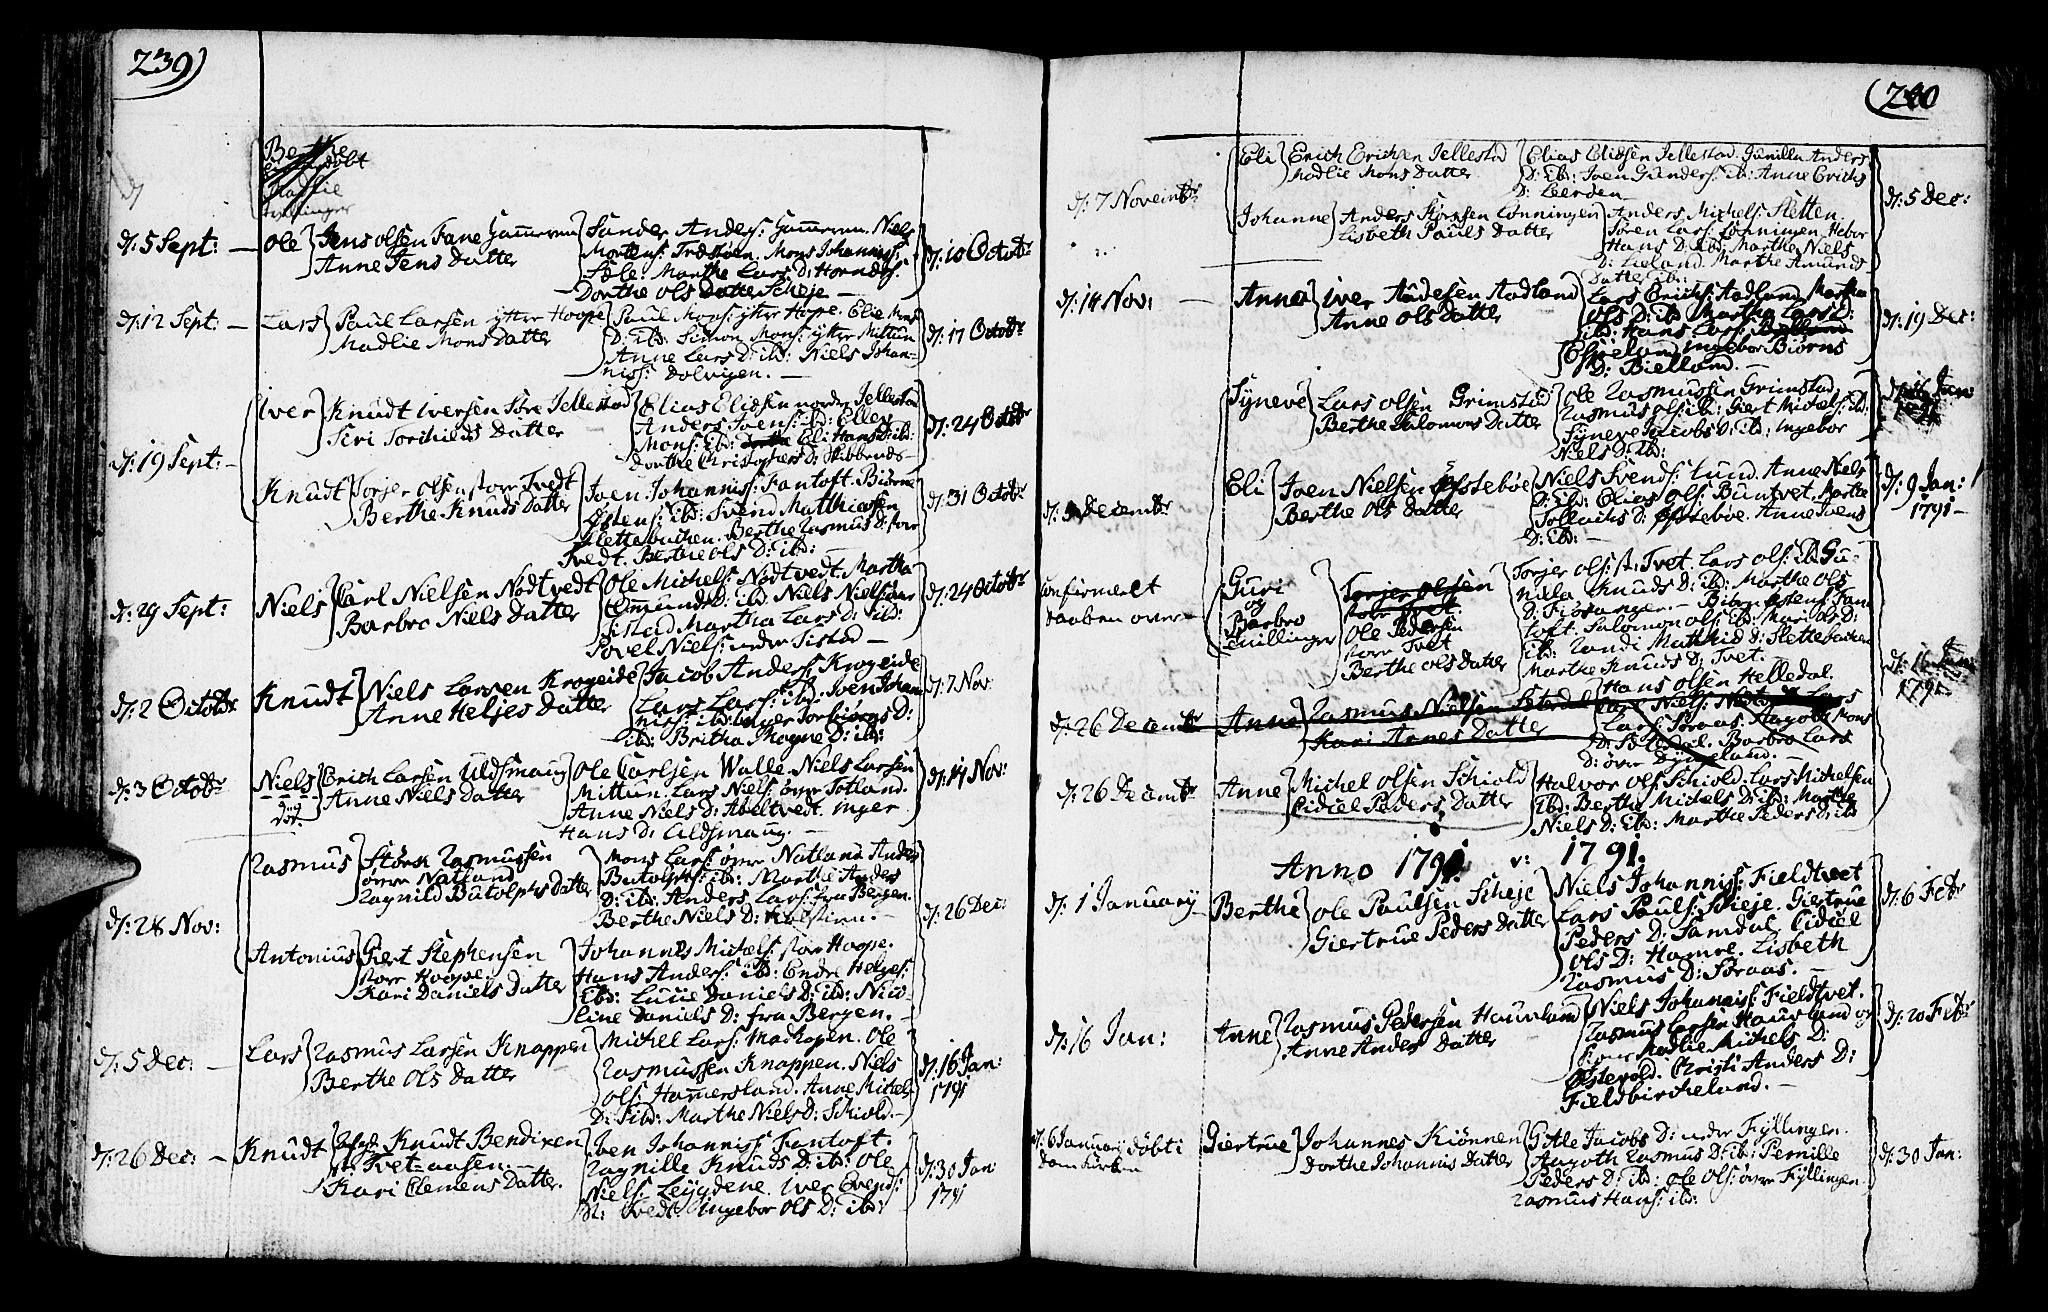 239)
Madlie
d: 5 Sept: — Ole Jens Olsen Fane
Anne Jens Datter
Sander Anders: Niels
Mortens: Mons Johanniss:
Marthe Lars D:
Dorthe Ols Datter Scheje —
d: 10 Octobr
d: 12 Sept: — Lars Paul Larsen ytter Hoope
Madlie Mons Datter
Paul Mons: ytter Hope. Elie Mons
D: ibd: Simon Mons: ytter Mittun
Anne Lars D: ibd: Niels Johan-
niss: Dolvigen. —
d: 17 Octobr
d: 19 Sept: —
Iver Knudt Iversen Søre Jellestad
Siri Torchilds Datter
Elias Eliæsen nordre Jellestad
Anders Ivens: ibd: Ellev
Mons: ibd: Eli Hans D: ibd:
Dorthe Christophers D:
d: 24 Octobr
Knudt Torjer Olsen stor Tvedt
Berthe Knuds Datter
Joen Johanniss: Fantoft. Biørne
Østens: ibd: Svend Matthiæssen
Slettebachen. Berthe Rasmus D: stor
Tvedt. Berthe Ols D: ibd:
d: 31 Octobr
d: 29 Sept: Niels Carl Nielsen Nødtvedt
Barbro Niels Datter
Ole Michels: Nødtvedt. Martha
D: ibd Niels Nielsen
Sistad Martha Lars D: ibd:
Povel Niels: nedre Sistad —
d: 24 Octobr
d: 2 Octobr Knudt Niels Larsen Krogeide
Anne Heljes Datter
Jacob Anders: Krogeide
Lars Lars: ibd. Iven Johan
niss: ibd: Inger Torbiørns D:
ibd: Britha Mogne D: ibd:
d: 7 Nov:
d: 3 Octobr Niels Erich Larsen Uldsmaug
Anne Niels Datter
død
Ole Carlsen Walle. Niels Larsen
Mittun. Lars Niels: øvre Totland.
Anne Niels D: Abeltvedt. Inger
Hans D: Uldsmaug. —
d: 14 Nov:
d: 28 Nov:
Rasmus Størck Rasmussen
øvre Natland
Ragnild Butolphs Datter
Mons Lars: øvre Natland Anders
Butolphs: ibd: Marthe Anders
D: ibd: Anders Lars: fra Bergen.
Berthe Niels D: —
d: 26 Dec:
Antonius Giert Stephensen
stor Hoope.
Kari Daniels Datter
Johannes Michels: stor Hoope.
Hans Anders: ibd: Endre Helges:
ibd: Lucie Daniels D: ibd: Nico-
line Daniels D: fra Bergen. —
d: 5 Dec: — Lars Rasmus Larsen Knappen
Berthe Ols Datter
Michel Lars: Ole
Rasmussen Knappen. Niels
Ols: Hamersland. Anne Michels
D: ibd: Marthe Niels D: Schiold. —
d: 16 Jan:
1791
d: 26 Dec: — Knudt Knudt Bendixen
Tvet-aasen. —
Kari Clemens Datter.
Iven Johanniss Fantoft.
Ragnille Knuds D: ibd: Ole
Niels: Løygdene. Iver Evend:
Tvedt. Ingebor Ols D: ibd:
d: 30 Jan
1791
(240
d: 7 Novembr
Eli Erich Erichsen Jellestad
Madlie Mons Datter
Elias Eliæsen Jellestad. Gunilla Anders
D: ibd: Joen Gunders: ibd: Anne Erichs
D: Leerden
Johanne Anders Størssen Lønningen
Lisbeth Pauls Datter
Anders Michels: Sletten.
Søren Lars: Lønningen. Hebor
Hans D: ibd: Marthe Niels
D: Lieland. Marthe Amunds
Datter ibd:
d: 5 Dec:
d: 14 Nov: — Anne Iver Aadesen Aadland
Anne Ols Datter
Lars Erichs: Aadland Martha
Ols D: ibd Martha Lars D:
ibd: Hans Lars:
Espeland Ingebor Biørns
D: Bielland. —
d: 19 Dec:
Syneve Lars Olsen Grimstad
Berthe Salomons Datter
Ole Rasmussen Grimstad
Rasmus Ols: ib: Giert Michels: ib:
Syneve Jacobs D: ibd: Ingebor
Niels D: ibd:
d: 16 Jan
d: 5 Decembr
Eli Joen Nielsen Østebøe
Berthe Ols Datter
Niels Svends: Lund. Anne Niels
D: ibd: Elias Ols: Buntvet. Marthe
D: Østebøe. Anne Ivens
D: ibd: —
d: 9 Jan:
1791 —
Confirmert
daaben over —
Guri
og
Barbro
tvillinger
Torjer Olsen
stor Tvet.
Ole Pedersen
stor Tvet
Berthe Ols Datter
Torjer Ols: st: Tvet. Lars Ols: ib: Gu-
nilla Knuds D: ib: Marthe Ols
D: Fiøsanger. — Biørn Østens: Fan-
toft. Salomon Ols: ib: Mari Ols D:
ib: Randi Matthis D: Slettebachen
Marthe Knuds D: Tvet.
d: 16 Jan:
1791
d: 26 Decembr Anne Rasmus Nielsen
Kari Arnes Datter
Hans Olsen Helledal.
Niels: Lars
Lars: Straas. Aagoth Mons
D: Barbro Lars
D: øver —
d: 26 Decembr Anne Michel Olsen Schiold
Cidiel Peders Datter
Halvor Ols: Schiold. Lars Michelsen
ibd: Berthe Michels D: ibd: Marthe
Niels D: ibd: Marthe Peders D: ibd
Anno 1791 v: 1791.
d: 1 January — Berthe Ole Paulsen Scheje
Giertrue Peders Datter
Niels Johanniss: Fieldtvet
Lars Pauls: Scheje. Giertrue
Peders D: Samdal Cidiel
Ols D: Hamre. Lisbeth
Rasmus D: Straas. —
d: 6 Febr
d: 16 Jan: Anne Rasmus Pedersen Hausland
Anne Anders Datter
Niels Johanniss: Fieldtvet.
Rasmus Larsen Hausland og
Madlie Michels D:
Østevold. Christi Anders D:
Fieldbircheland. —
d: 20 Febr
d: 6 January døbt i
Domkirken
Giertrue Johannes Kiønnen
Dorthe Johannis Datter
Jacobs D: nedre Fyllingen.
Aagoth Rasmus D: ib: Pernille
Peders D: ib: Ole Ols: øvre Fyllingen
Rasmus Hans: ib:
d: 30 Jan: